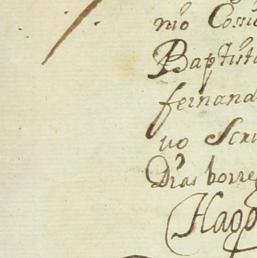 nio Cossi
Baptista
fernand
uo Scri
Dias borre
Hago